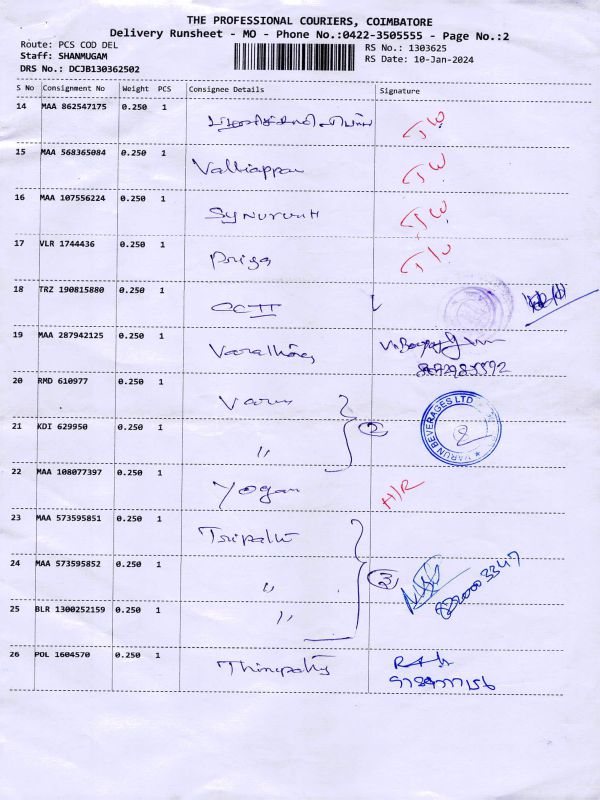 THE PROFESSIONAL COURIERS, COIMBATORE
Delivery Runsheet - MO - Phone No.:0422-3505555 - Page No.:2
Route: PCS COD DEL
RS No.: 1303625
Staff: SHANMUGAM
RS Date: 10-Jan-2024
DRS No.: DCJB130362502
S No Consignment No Weight PCS Consignee Details Signature
14 MAA 862547175 0.250 1
15 MAA 568365084 0.250 1 Valliappan
16 MAA 107556224 0.250 1
17 VLR 1744436 0.250 1 Priya
18 TRZ 190815880 0.250 1
19 MAA 287942125 0.250 1
20 RMD 610977 0.250 1 Varun
21 KDI 629950 0.250 1 " 2 VARUN BEVERAGES LTD
22 MAA 108077397 0.250 1 Yogan H/R
23 MAA 573595851 0.250 1
24 MAA 573595852 0.250 1 " 3
25 BLR 1300252159 0.250 1 "
26 POL 1604570 0.250 1